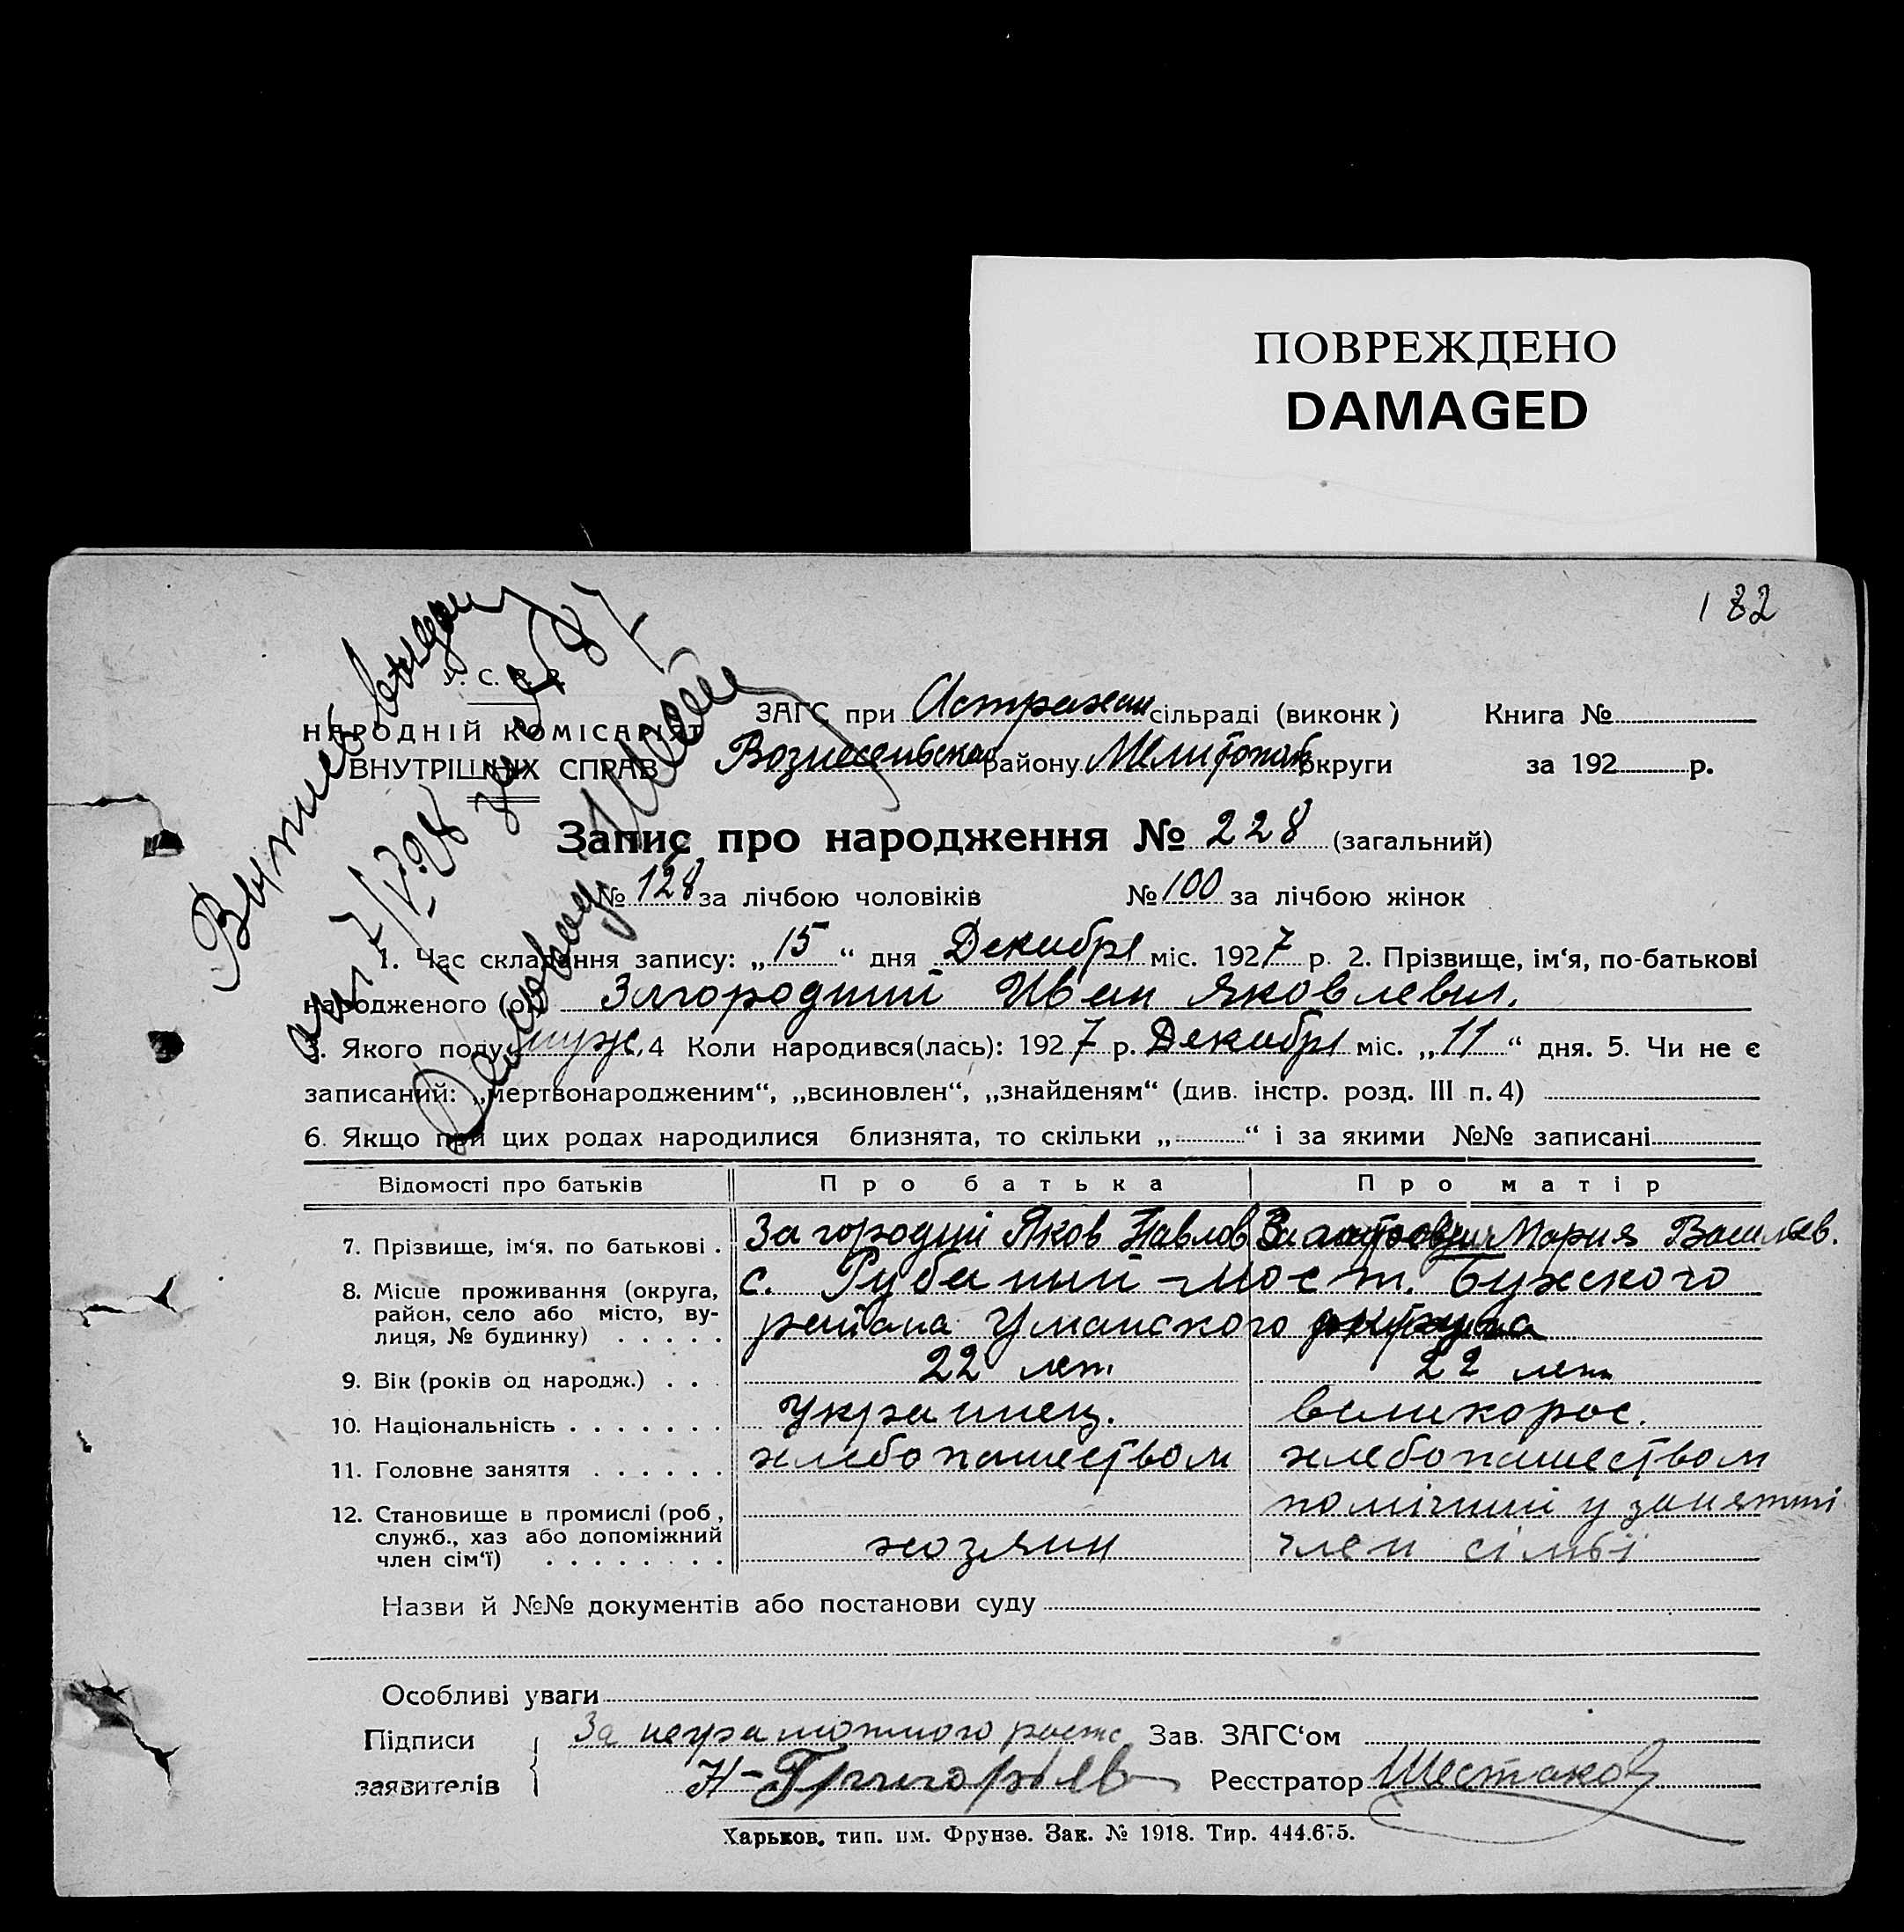 ПОВРЕЖДЕНО
DAMAGED
182
У. С. Р. Р.
НАРОДНІЙ КОМІСАРІЯТ
ВНУТРІШНІХ СПРАВ
Выпись выдана
за № 87
ЗАГС при Астрахан сільраді (виконк) Книга №
Вознесенское району Мелитопол округи за 192 р.
Запис про народження № 228 (загальний)
№ 128 за лічбою чоловіків № 100 за лічбою жінок
1. Час складання запису: „15“ дня Декабря міс. 1927 р. 2. Прізвище, ім‘я, по-батькові
народженого (ої) Загородний Иван Яковлевич.
3. Якого полу муж. 4 Коли народився(лась): 1927 р. Декабря міс. „11“ дня. 5. Чи не є
записаний: „мертвонародженим“, „всиновлен“, „знайденям“ (див. інстр. розд. III п. 4)
6. Якщо при цих родах народилися близнята, то скільки „ “ і за якими №№ записані
Відомості про батьків Про батька Про матір
7. Прізвище, ім‘я, по батькові. Загородний Яков Павлов Мария Васильев.
8. Місце проживання (округа, район, село або місто, вулиця, № будинку) с. Рубаный-Мост. Бужского
района Уманского округа
9. Вік (років од народж.) 22 лет 22 лет
10. Національність украинец. великорос.
11. Головне заняття хлебопашеством хлебопашеством
12. Становище в промислі (роб, помічний у занятті
служб., хаз або допоміжний
член сім‘ї) хозяин член сімьі
Назви й №№ документів або постанови суду
Особливі уваги
Підписи За неграмотного роспис Зав. ЗАГС‘ом
заявителів Н-Григорьев Реєстратор Шестаков
Харьков, тип. им. Фрунзе. Зак. № 1918. Тир. 444.675.